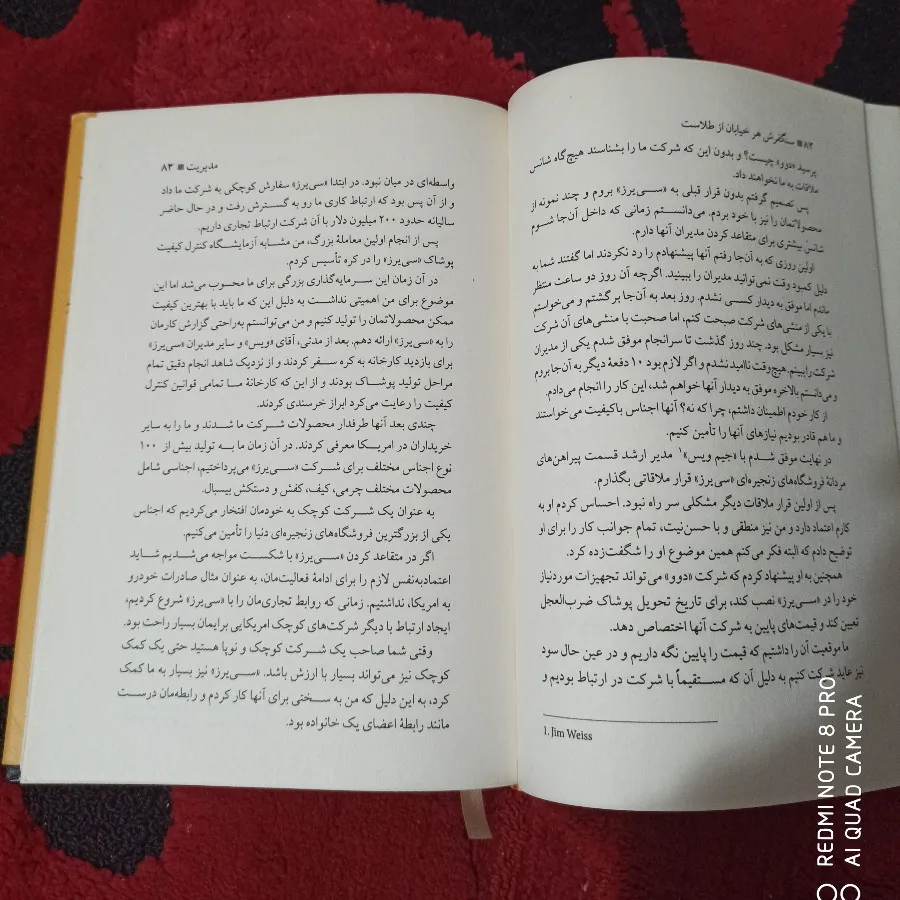 ۸۲ ■ سنگفرش هر خیابان از طلاست
پرسید «دوو» چیست؟ و بدون این که شرکت ما را بشناسند هیچ‌گاه شانس
ملاقات به ما نخواهند داد.
پس تصمیم گرفتم بدون قرار قبلی به «سی‌یرز» بروم و چند نمونه از
محصولاتمان را نیز با خود بردم. می‌دانستم زمانی که داخل آن‌جا شوم
شانس بیشتری برای متقاعد کردن مدیران آنها دارم.
اولین روزی که به آن‌جا رفتم آنها پیشنهادم را رد نکردند اما گفتند شما به
دلیل کمبود وقت نمی‌توانید مدیران را ببینید. اگرچه آن روز دو ساعت منتظر
ماندم اما موفق به دیدار کسی نشدم. روز بعد به آن‌جا برگشتم و می‌خواستم
با یکی از منشی‌های شرکت صحبت کنم، اما صحبت با منشی‌های آن شرکت
نیز بسیار مشکل بود. چند روز گذشت تا سرانجام موفق شدم یکی از مدیران
شرکت را ببینم. هیچ‌وقت ناامید نشدم و اگر لازم بود ۱۰ دفعهٔ دیگر به آن‌جا بروم
و می‌دانستم بالاخره موفق به دیدار آنها خواهم شد، این کار را انجام می‌دادم.
از کار خودم اطمینان داشتم، چرا که نه؟ آنها اجناس باکیفیت می‌خواستند
و ما هم قادر بودیم نیازهای آنها را تأمین کنیم.
در نهایت موفق شدم با «جیم ویس»۱ مدیر ارشد قسمت پیراهن‌های
مردانهٔ فروشگاه‌های زنجیره‌ای «سی‌یرز» قرار ملاقاتی بگذارم.
پس از اولین قرار ملاقات دیگر مشکلی سر راه نبود. احساس کردم او به
کارم اعتماد دارد و من نیز منطقی و با حسن‌نیت، تمام جوانب کار را برای او
توضیح دادم که البته فکر می‌کنم همین موضوع او را شگفت‌زده کرد.
همچنین به او پیشنهاد کردم که شرکت «دوو» می‌تواند تجهیزات موردنیاز
خود را در «سی‌یرز» نصب کند، برای تاریخ تحویل پوشاک ضرب‌العجل
تعیین کند و قیمت‌های پایین به شرکت آنها اختصاص دهد.
ما موقعیت آن را داشتیم که قیمت را پایین نگه داریم و در عین حال سود
نیز عاید شرکت کنیم به دلیل آن که مستقیماً با شرکت در ارتباط بودیم و
1. Jim Weiss
مدیریت ■ ۸۳
واسطه‌ای در میان نبود. در ابتدا «سی‌یرز» سفارش کوچکی به شرکت ما داد
و از آن پس بود که ارتباط کاری ما رو به گسترش رفت و در حال حاضر
سالیانه حدود ۲۰۰ میلیون دلار با آن شرکت ارتباط تجاری داریم.
پس از انجام اولین معاملهٔ بزرگ، من مشابه آزمایشگاه کنترل کیفیت
پوشاک «سی‌یرز» را در کره تأسیس کردم.
در آن زمان این سرمایه‌گذاری بزرگی برای ما محسوب می‌شد اما این
موضوع برای من اهمیتی نداشت به دلیل این که ما باید با بهترین کیفیت
ممکن محصولاتمان را تولید کنیم و من می‌توانستم به‌راحتی گزارش کارمان
را به «سی‌یرز» ارائه دهم. بعد از مدتی، آقای «ویس» و سایر مدیران «سی‌یرز»
برای بازدید کارخانه به کره سفر کردند و از نزدیک شاهد انجام دقیق تمام
مراحل تولید پوشاک بودند و از این که کارخانهٔ ما تمامی قوانین کنترل
کیفیت را رعایت می‌کرد ابراز خرسندی کردند.
چندی بعد آنها طرفدار محصولات شرکت ما شدند و ما را به سایر
خریداران در امریکا معرفی کردند. در آن زمان ما به تولید بیش از ۱۰۰
نوع اجناس مختلف برای شرکت «سی‌یرز» می‌پرداختیم، اجناسی شامل
محصولات مختلف چرمی، کیف، کفش و دستکش بیسبال.
به عنوان یک شرکت کوچک به خودمان افتخار می‌کردیم که اجناس
یکی از بزرگترین فروشگاه‌های زنجیره‌ای دنیا را تأمین می‌کنیم.
اگر در متقاعد کردن «سی‌یرز» با شکست مواجه می‌شدیم شاید
اعتمادبه‌نفس لازم را برای ادامهٔ فعالیت‌مان، به عنوان مثال صادرات خودرو
به امریکا، نداشتیم. زمانی که روابط تجاری‌مان را با «سی‌یرز» شروع کردیم،
ایجاد ارتباط با دیگر شرکت‌های کوچک امریکایی برایمان بسیار راحت بود.
وقتی شما صاحب یک شرکت کوچک و نوپا هستید حتی یک کمک
کوچک نیز می‌تواند بسیار با ارزش باشد. «سی‌یرز» نیز بسیار به ما کمک
کرد، به این دلیل که من به سختی برای آنها کار کردم و رابطه‌مان درست
مانند رابطهٔ اعضای یک خانواده بود.
REDMI NOTE 8 PRO
AI QUAD CAMERA